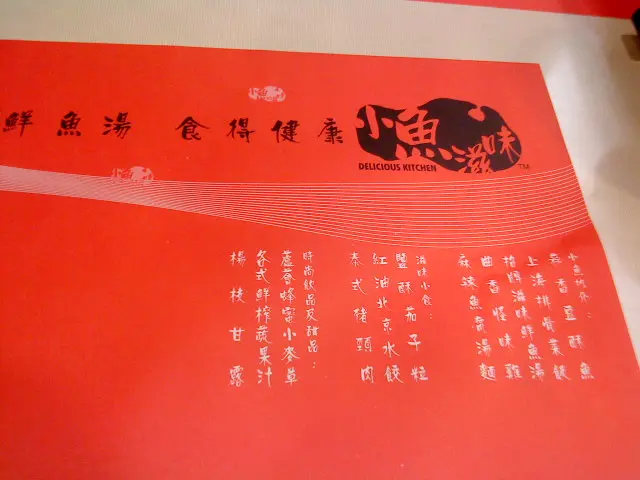 鮮魚湯 食得健康
小魚滋味
DELICIOUS KITCHEN
TM
小魚
蒜香豆酥魚
上海排骨菜飯
招牌滋味鮮魚湯
曲香怪味雞
麻辣魚湯麵
滋味小食：
鹽酥茄子粒
紅油北京水餃
泰式豬頸肉
時尚飲品及甜品：
蘆薈蜂蜜小麥草
各式鮮榨蔬果汁
楊枝甘露